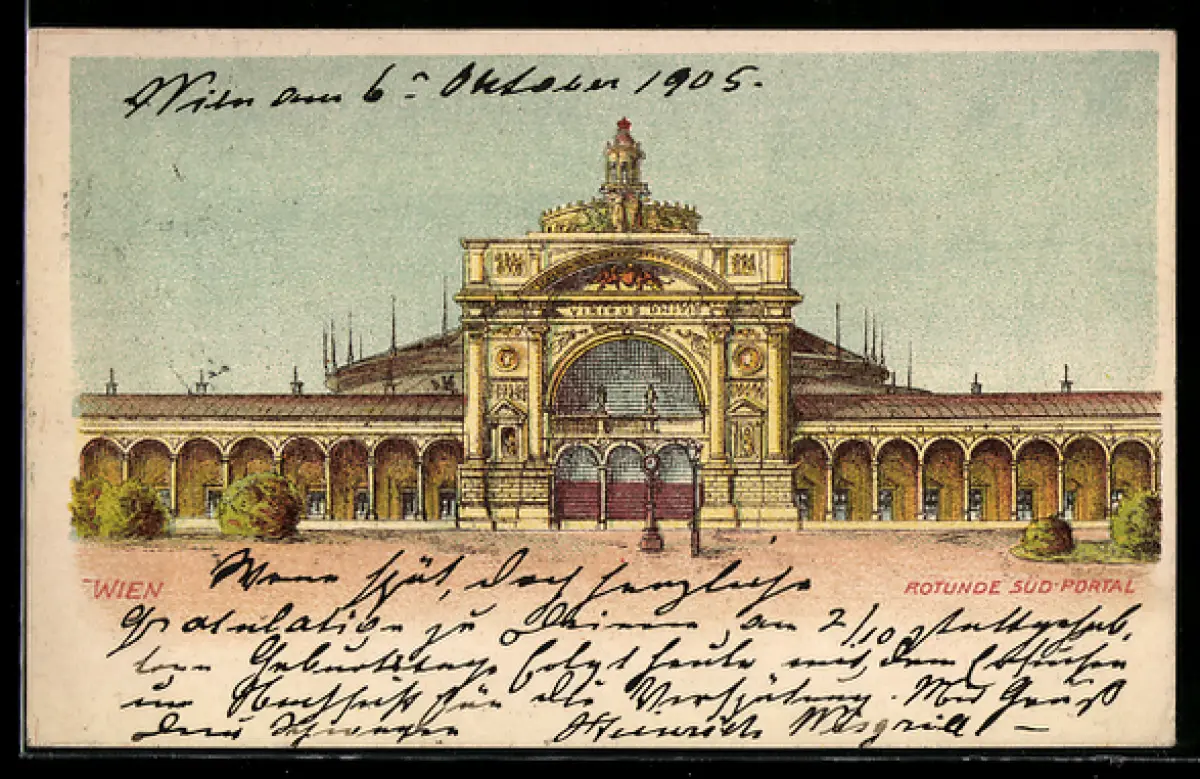 Wien am 6. Oktober 1905.
VIRIBUS UNITIS
WIEN
ROTUNDE SÜD-PORTAL
Wenn spät, doch herzliche
Gratulation zu Deinem, am 2/10 stattgehab-
ten Geburtstage folgt heute mit dem Ersuchen
um Nachsicht für die Verspätung. Mit Gruß
Dein Schwager Heinrich